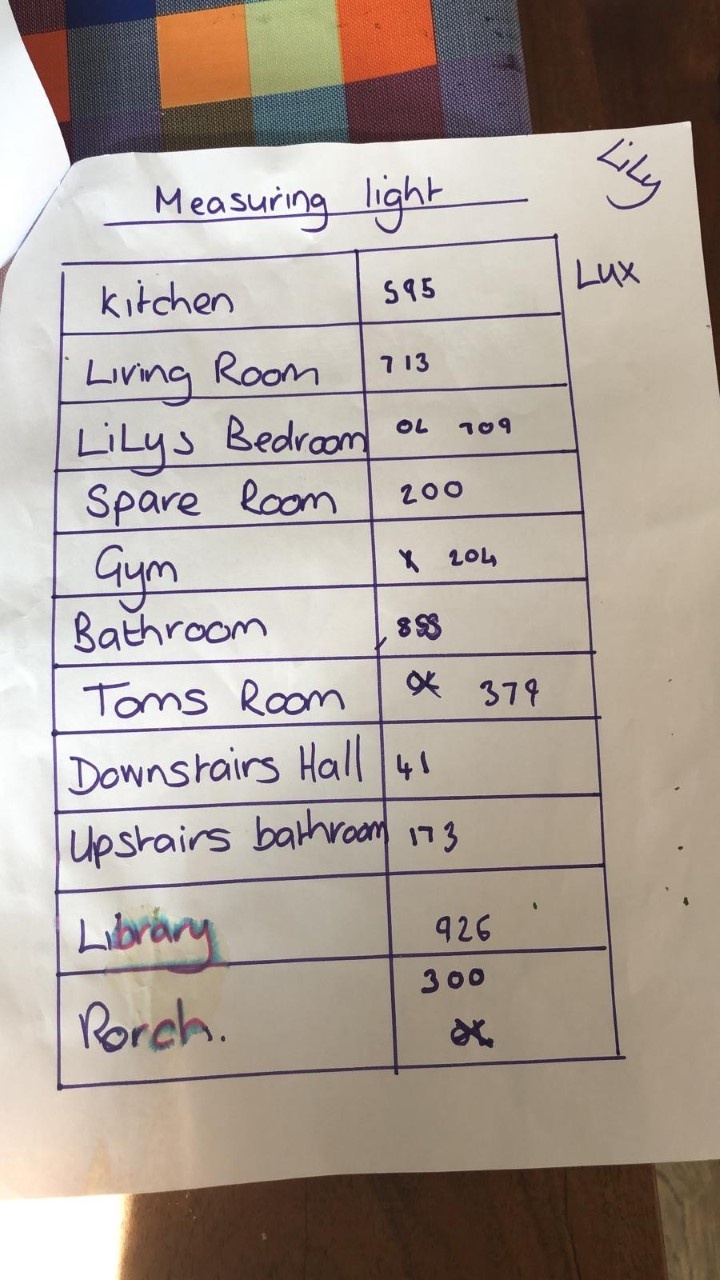 Lily
Measuring light
Lux
Kitchen 595
Living Room 713
Lilys Bedroom OL 709
Spare Room 200
Gym 204
Bathroom 855
Toms Room 379
Downstairs Hall 41
Upstairs bathroom 173
Library 926
Porch. 300